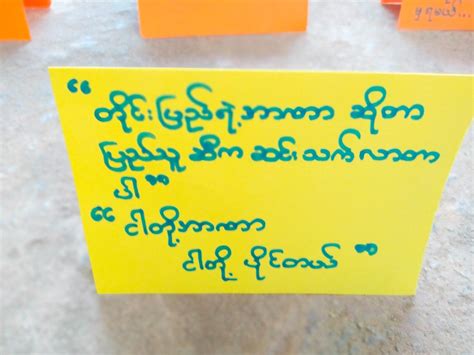 မှ ရမယ်...
“ တိုင်းပြည်ရဲ့ အာဏာ ဆိုတာ
ပြည်သူ ဆီက ဆင်းသက်လာတာ
ပါ ”
“ ငါတို့အာဏာ
ငါတို့ ပိုင်တယ် ”